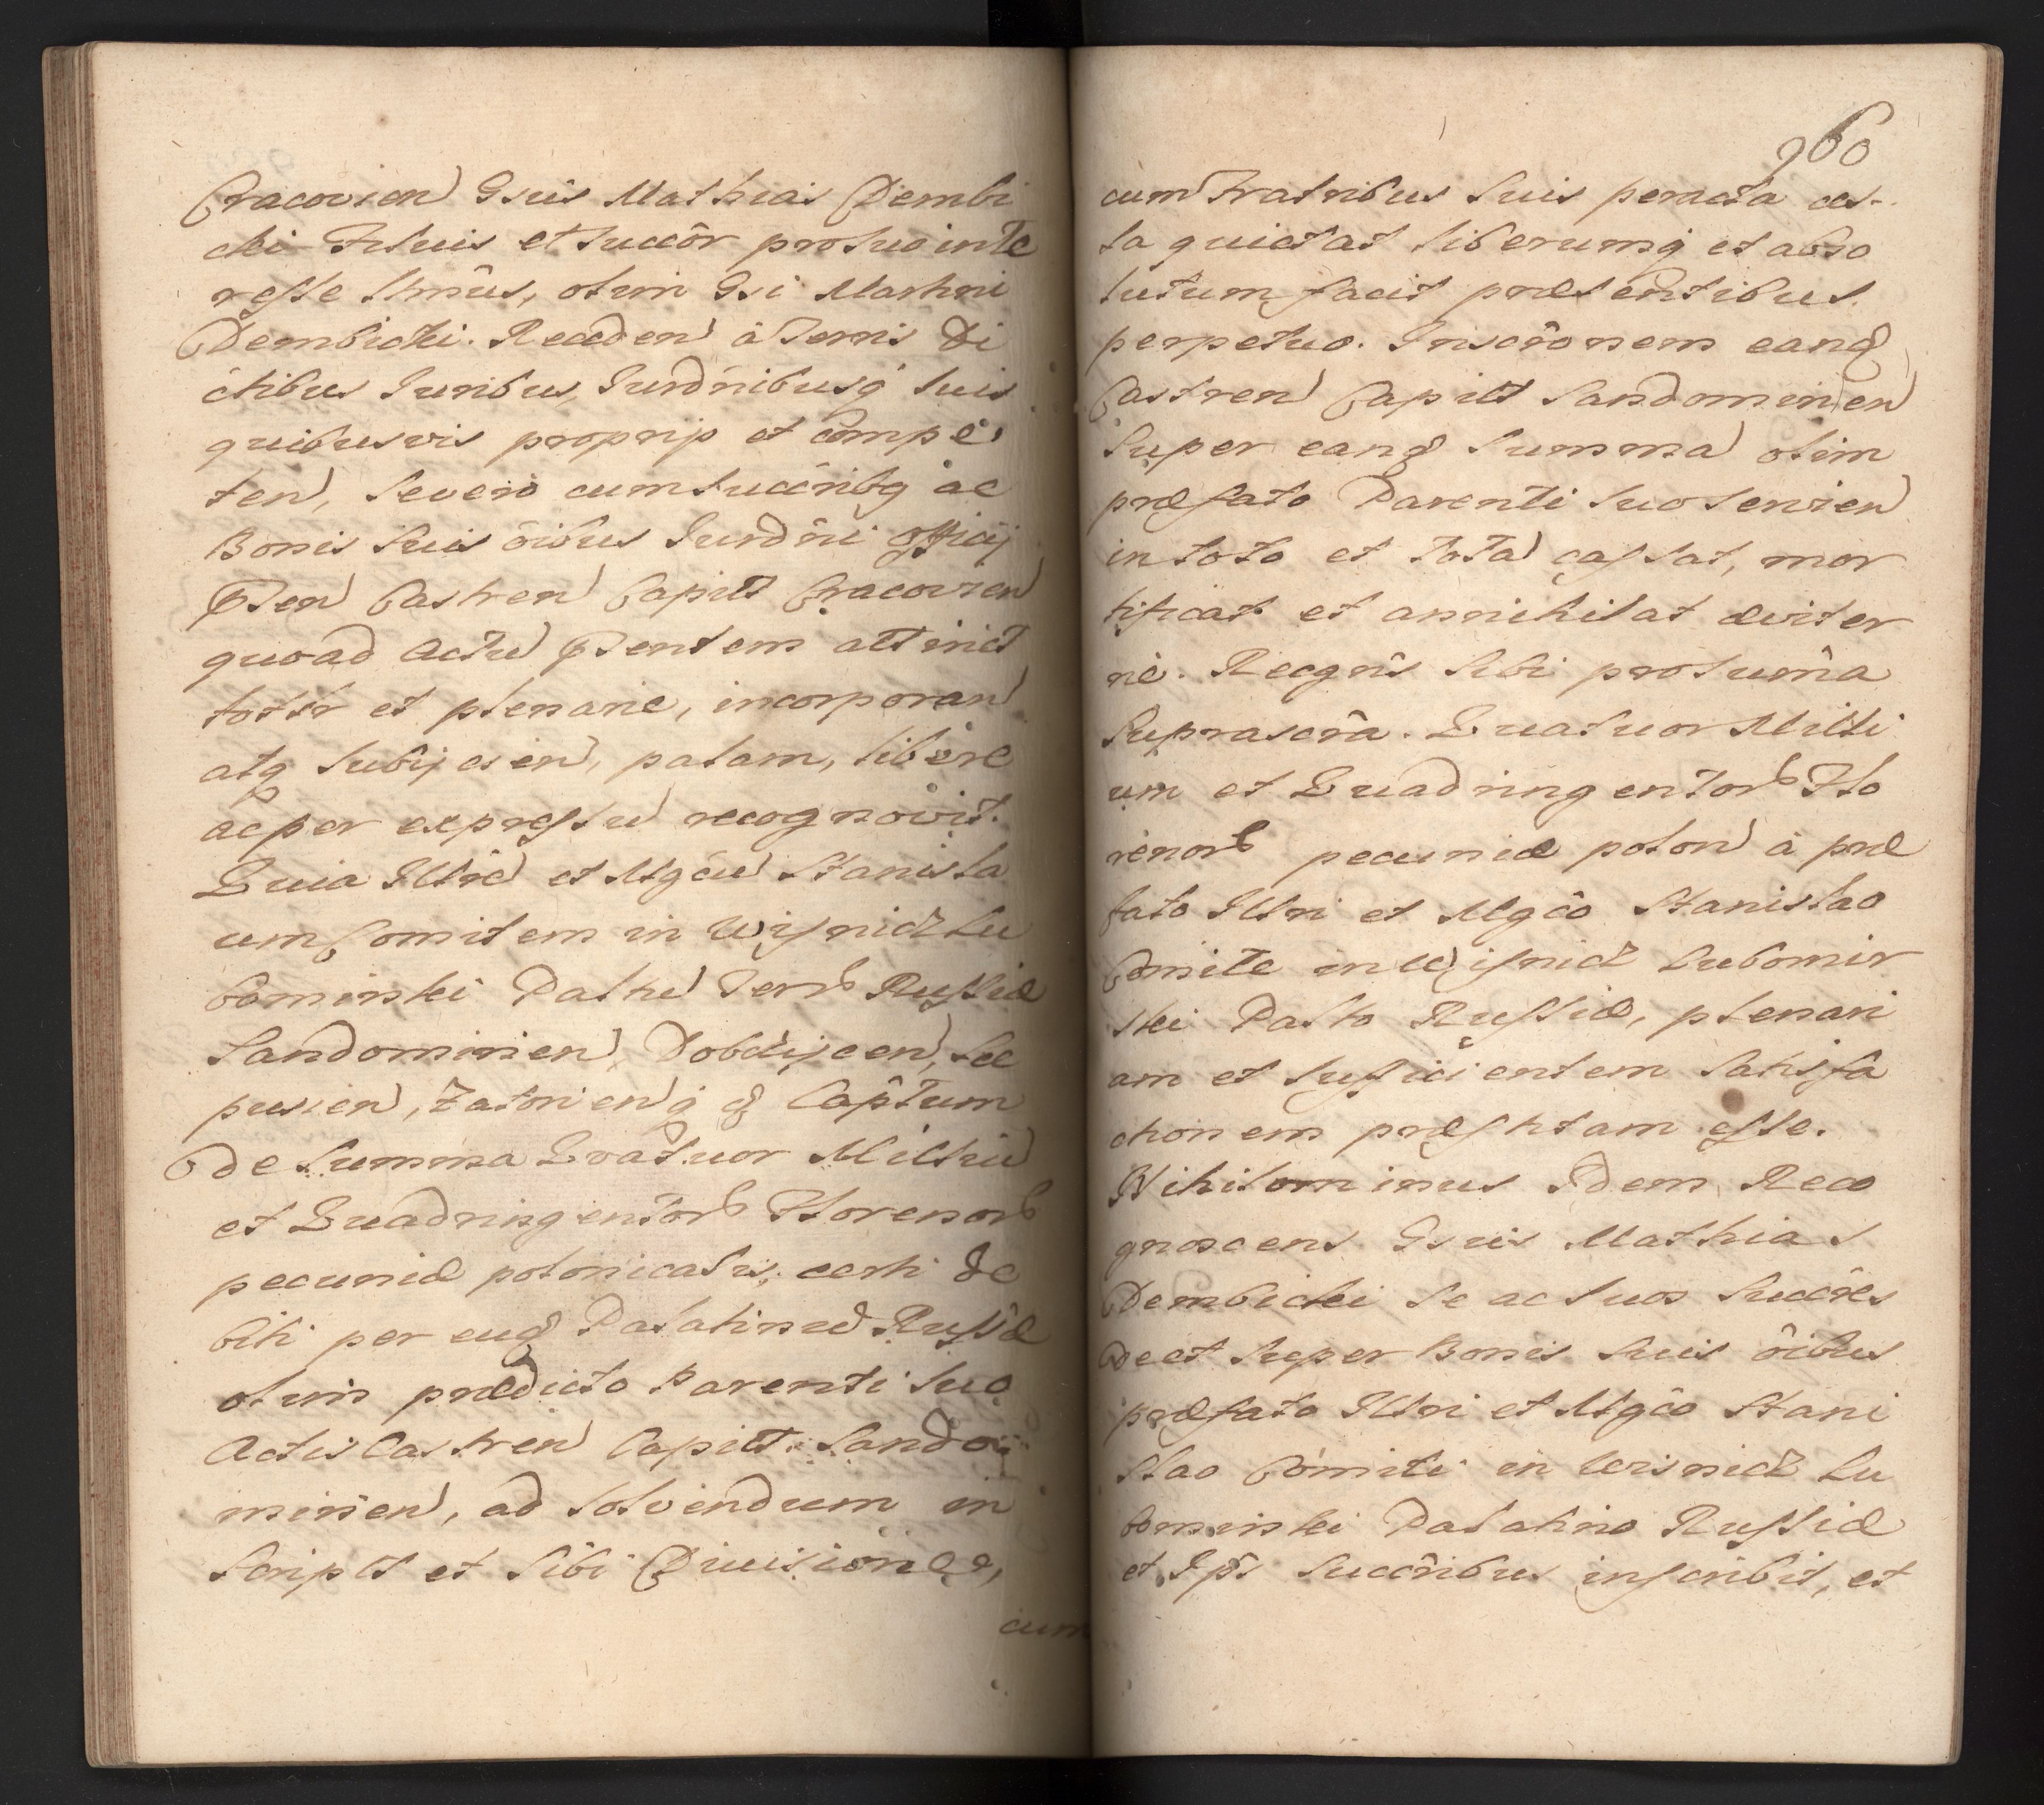 Cracovien Gsus Mathias Dembi
cki Filius et succôr pro suo inte
resse Ihmûs, olim Gsi Martini
Dembicki. Recceden â Terris Di
ctibus Iuribus, Iurdnibusq suis
quibusvis proprijs et compe
ten, se vero cum succribq ac
Bonis suis ôibus Iurdni officij
Pten Castren Capitt Cracovien
quoad Actu Ptentem attinet
tottr et plenarie, incorporan
atq subijcien, palam, libere
ac per expressu recognovit.
Quia Illrê et Mgcu Stanisla
um Comitem in Wisnicz Lu
bomirski Palnu Terrs Russiæ
Sandomirien, Dobczycen, Sce
pusien, Zatorien q & Capîtum
De summa Quatuor Milliu
et Quadringentors Florenors
pecuniæ polonicalis, certi de
biti per eud Palatinu Russiæ
olim prædicto Parenti suo
Actis Castren Capitt Sando
mirien, ad solvendum in
script et sibi Divisione,
cum
960
cum Fratribus suis peracta ces-
sa quietat liberumq et abso
lutum facit præsentibus
perpetuo. Inscrônem eand
Castren Capitt Sandomirien
super eand summa olim
præfato Parenti suo servien
in toto et tota cassat, mor
tificat et annihilat æviter
nê. Recgns sibi pro sumâ
suprascrâ. Quatuor Milli
um et Quadringentors Flo
renors pecuniæ polon â præ
fato Illri et Mgcô Stanislao
Comite in Wisnicz Lubomir
ski Palto Russiæ, plenari
am et sufficientem satisfa
ctionem præstitam esse.
Nihilominus Idem Reco
gnoscens Gsus Mathias
Dembicki se ac suos succres
De et super Bonis suis ôibus
præfato Illri et Mgcô Stani
slao Comiti in Wisnicz Lu
bomirski Palatino Russiæ
et Ips succribus inscribit, et